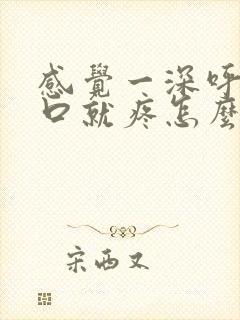 感覺一深呼
口就疼怎麼
宋西又